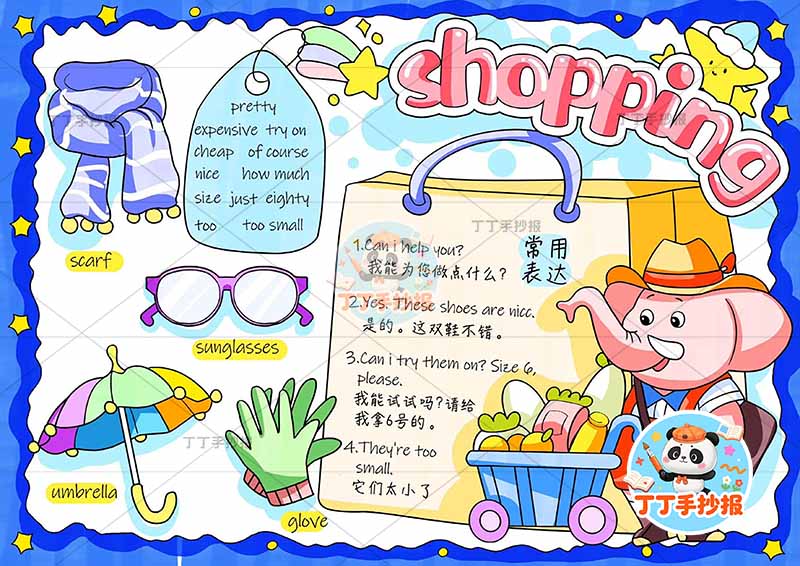 shopping
pretty
expensive try on
cheap of course
nice how much
size just eighty
too too small
scarf
sunglasses
umbrella
glove
常用
表达
1.Can i help you?
我能为您做点什么?
2.Yes. These shoes are nicc.
是的。这双鞋不错。
3.Can i try them on? Size 6,
please.
我能试试吗?请给
我拿6号的。
4.They're too
small.
它们太小了
丁丁手抄报
丁丁手抄报
丁丁手抄报
丁丁手抄报
丁丁手抄报
丁丁手抄报